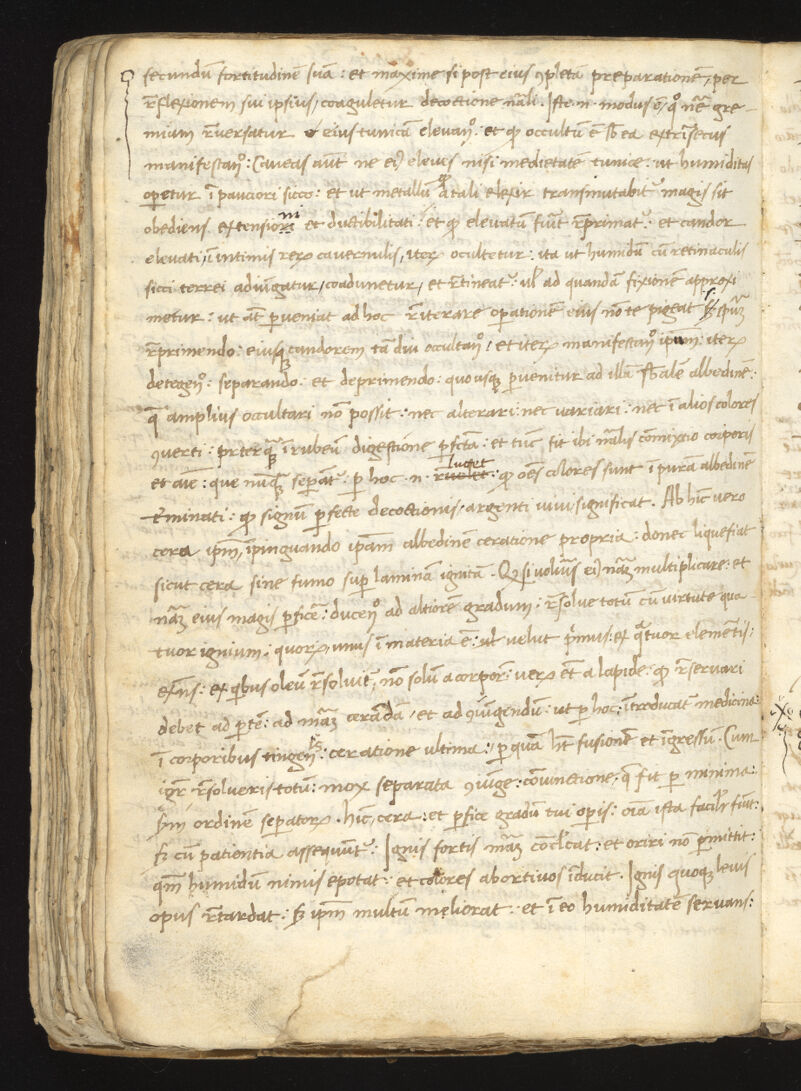 secundū fortitudinē suā : et maxime si post eius ꝯpletā preparationē, per
r̄flexionem sui ipsius, coaguletur decoctione nāli . Iste .n. modus ē, qͦ nr̄e gre-
mium r̄versatur eius tunicā elevanͦ : et qͥ occultū ē ī ea extrīsecus
manifestanͦ : Caveas aūt ne eiꝰ eleves nisi medietatē tunicæ : ut humiditas
oꝑetur ī pauciori sicco : et ut metallū qͩ a tali elexir transmutabitͬ magis sit
obediens extensioni et ductibilitati : et qͥ elevatum fūit r̄primatͬ : et candor
elevati, ī intimis rerꝝ cavernulis, iterꝝ occultetur : ita ut humidū cū retinaculis
sicci terrei adiūgatur, coadunetur, et r̄tineatͬ : ul̄ ad quandā fixionē approxi
metur : ut aūt ꝑveniat ad hoc r̄iterare operationē eius nō te pigeat
r̄primendo : eiusqꝫ candorem tā diu occultanͦ, et iterꝝ manifestanͦ ip̄um : iterꝝ
detegenͦ : separando : et deprimendo : quousqꝫ ꝑvenitur ad illā albedinē :
q̄ amplius occultari nō possit : nec alterari : nec variari : nec ī alios colores
ꝯverti : pr̄terq̄ꝫ ī rubeū digestione ꝑfcta : et tūc fit ibi nālis cōmixtio corporis
et aīe : que nunq̄ꝫ separātͬ : ꝑ hoc .n. lucet : qͥ oēs colores sunt ī purā albedinē
t̄minati : qͥ signū ꝑfecte decoctionis, argenti vivi significat . Ab hīc vero
cera ip̄m, īpinguando ipsam albedinem ceratione propria : donec liquefiat
sicut cera sine fumo suꝑ laminā ignitā : Qͩ si volūꝰ eiꝰ nāꝫ multiplicare : et
nāꝫ eius magis ꝑficē : ducenͦ ad altiorē gradum : r̄solve totū cū virtute qua-
tuor ignium : quorꝝ unus ī materia ē : ul̄ velut pͥmus : ex q̄tuor elementis :
exn̄s : ex qͥbus oleū r̄solvit, nō solū a corpor̄ : verꝝ et a lapide : qͥ r̄servari
debet ad ꝑtē : ad māꝫ cerādā, et ad ꝯiūgendū : ut ꝑ hoc : ītroducatͬ medicina
ī corporibus : ceratione ultima : ꝑ quā hēt fusionē et īgressū . Cum
igr̄ r̄solveris totū : mox separata ꝯiūge : cōiunctione, q̄ fit ꝑ minima :
ordinē seꝑatorꝝ . hīc, cera : et ꝑfice gradū tui oꝑis : oīa ista facilr̄ fiūt :
sꝫ cū patientia assequūtͬ : Ignis fortis māꝫ cōculcat : et oriri nō ꝑmittit :
qm̄ humidū nimis epotat : et colores abortivos īducit . Ignis quoqꝫ levis
opus r̄tardat : sꝫ ip̄m multū meliorat : et ī eo humiditatē servans :